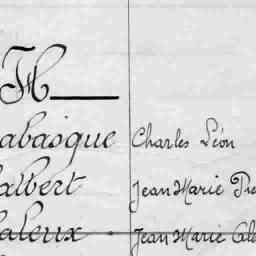 H
abasque Charles Léon
albert Jean Marie
aleux Jean Marie